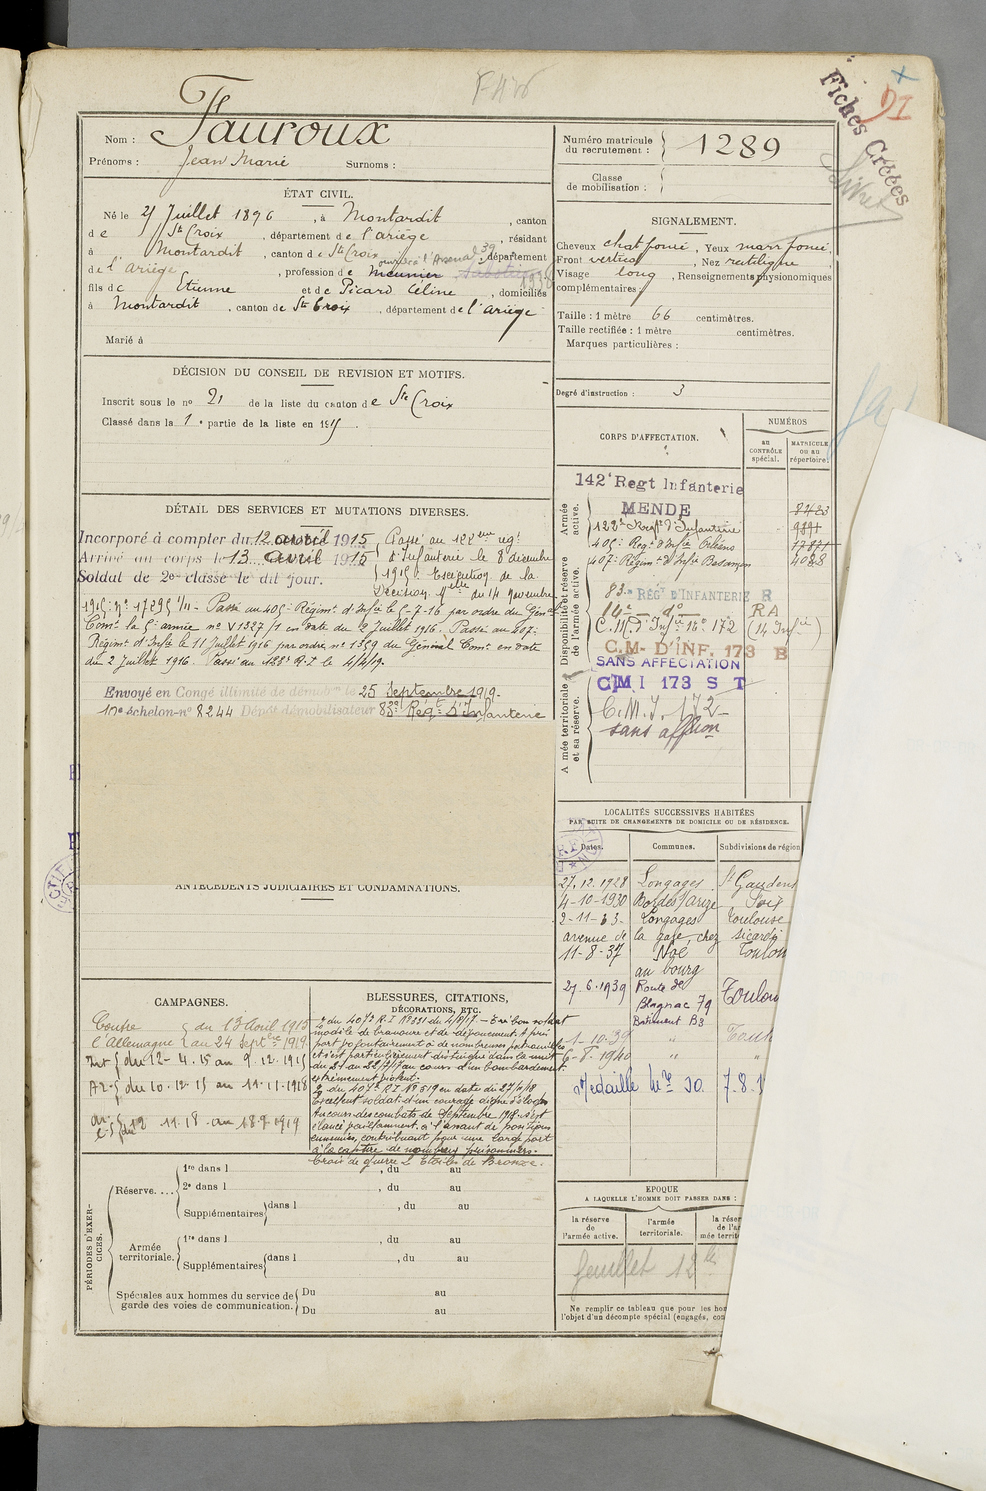 Fiches Créées
Nom : Fauroux
Prénoms : Jean Marie Surnoms :
ÉTAT CIVIL.
Né le 21 Juillet 1896, à Montardit, canton
de Ste Croix, département de l'ariège, résidant
à Montardit, canton de Ste Croix, département
de l'Ariège, profession de meunier
fils de Etienne et de Picard Céline, domiciliés
à Montardit, canton de Ste Croix, département de l'ariège
Marié à
DÉCISION DU CONSEIL DE REVISION ET MOTIFS.
Inscrit sous le no 21 de la liste du canton de Ste Croix
Classé dans la 1e partie de la liste en 1915
DÉTAIL DES SERVICES ET MUTATIONS DIVERSES.
Incorporé à compter du 12 avril 1915 Passé au 122eme regt
Arrivé au corps le 13 avril 1915 d'Infanterie le 8 décembre
Soldat de 2e classe le dit jour. 1915. Exécution de la
Décision Mlle du 14 Novembre
1915 no 17295 1/11 - Passé au 405e Régimt d'Infie le 5-7-16 par ordre du Génal
Comt la 5e armée no V1327/1 en date du 2 Juillet 1916. Passé au 407e
Régimt d'Infie le 11 Juillet 1916 par ordre no 1359 du Général Comt en date
du 2 Juillet 1916. Passé au 122e R.I. le 4/4/19.
Envoyé en Congé illimité de démobon le 25 Septembre 1919.
10e échelon no 8244 Dépôt démobilisateur 83e Régt d'Infanterie
ANTÉCÉDENTS JUDICIAIRES ET CONDAMNATIONS.
CAMPAGNES.
Contre du 13 Avril 1915
l'Allemagne au 24 septbre 1919
Int du 12-4.15 au 9.12.1915
AZ du 10.12.15 au 11.11.1918
du 12 11.18 au 18 9 1919
BLESSURES, CITATIONS,
DÉCORATIONS, ETC.
du 407e R.I No 331 du 4/8/17 - Très bon soldat
modèle de bravoure et de dévouement. A pris
part volontairement à de nombreuses patrouilles
et s'est particulièrement distingué dans la nuit
du 21 au 22/7/17 au cours d'un bombardement
extrêmement violent.
2e du 407e R.I No 519 en date du 27/10/18
Excellent soldat d'un courage digne d'éloges
Au cours des combats de Septembre 1918. s'est
élancé vaillamment à l'assaut de positions
ennemies, contribuant pour une large part
à la capture de nombreux prisonniers.
Croix de guerre 2 Etoiles de Bronze.
PÉRIODES D'EXERCICES.
Réserve.... 1re dans l , du au
2e dans l , du au
Supplémentaires dans l , du au
Armée territoriale. 1re dans l , du au
Supplémentaires dans l , du au
Spéciales aux hommes du service de Du au
garde des voies de communication. Du au
Numéro matricule du recrutement : 1289
Classe de mobilisation :
SIGNALEMENT.
Cheveux chat foncé, Yeux marr foncé
Front vertical, Nez rectiligne
Visage long, Renseignements physionomiques
complémentaires :
Taille : 1 mètre 66 centimètres.
Taille rectifiée : 1 mètre centimètres.
Marques particulières :
Degré d'instruction : 3
CORPS D'AFFECTATION.
NUMÉROS
au CONTRÔLE spécial.
MATRICULE ou au répertoire.
Armée active.
142e Regt Infanterie
MENDE
122e Regt d'Infanterie
405e Regt d'Infie Orléans
407e Régimt d'Infie Besançon 4028
Disponibilité et réserve de l'armée active.
83e REGt D'INFANTERIE R
14e do RA
C.M. d'Infie no 172 (14 Infie)
C.M. D'INF. 173 B
SANS AFFECTATION
CMI 173 ST
Armée territoriale et sa réserve.
C.M.I. 172
sans affon
LOCALITÉS SUCCESSIVES HABITÉES
PAR SUITE DE CHANGEMENTS DE DOMICILE OU DE RÉSIDENCE.
Dates. Communes. Subdivisions de région
27.12.1928 Longages St Gaudens
4-10-1930 Bordes s/arize Foix
2-11-33 Longages Toulouse
avenue de la gare, chez sicardi
11-8-37 Noé Toulou
au bourg
27.6.1939 Route de Toulou
Blagnac 79
Batiment B3
1-10-39 "
6-8.1940 "
Médaille Mre JO. 7-8-
EPOQUE
A LAQUELLE L'HOMME DOIT PASSER DANS :
la réserve de l'armée active.
l'armée territoriale.
feuillet 12
Ne remplir ce tableau que pour les hom
l'objet d'un décompte spécial (engagés, con